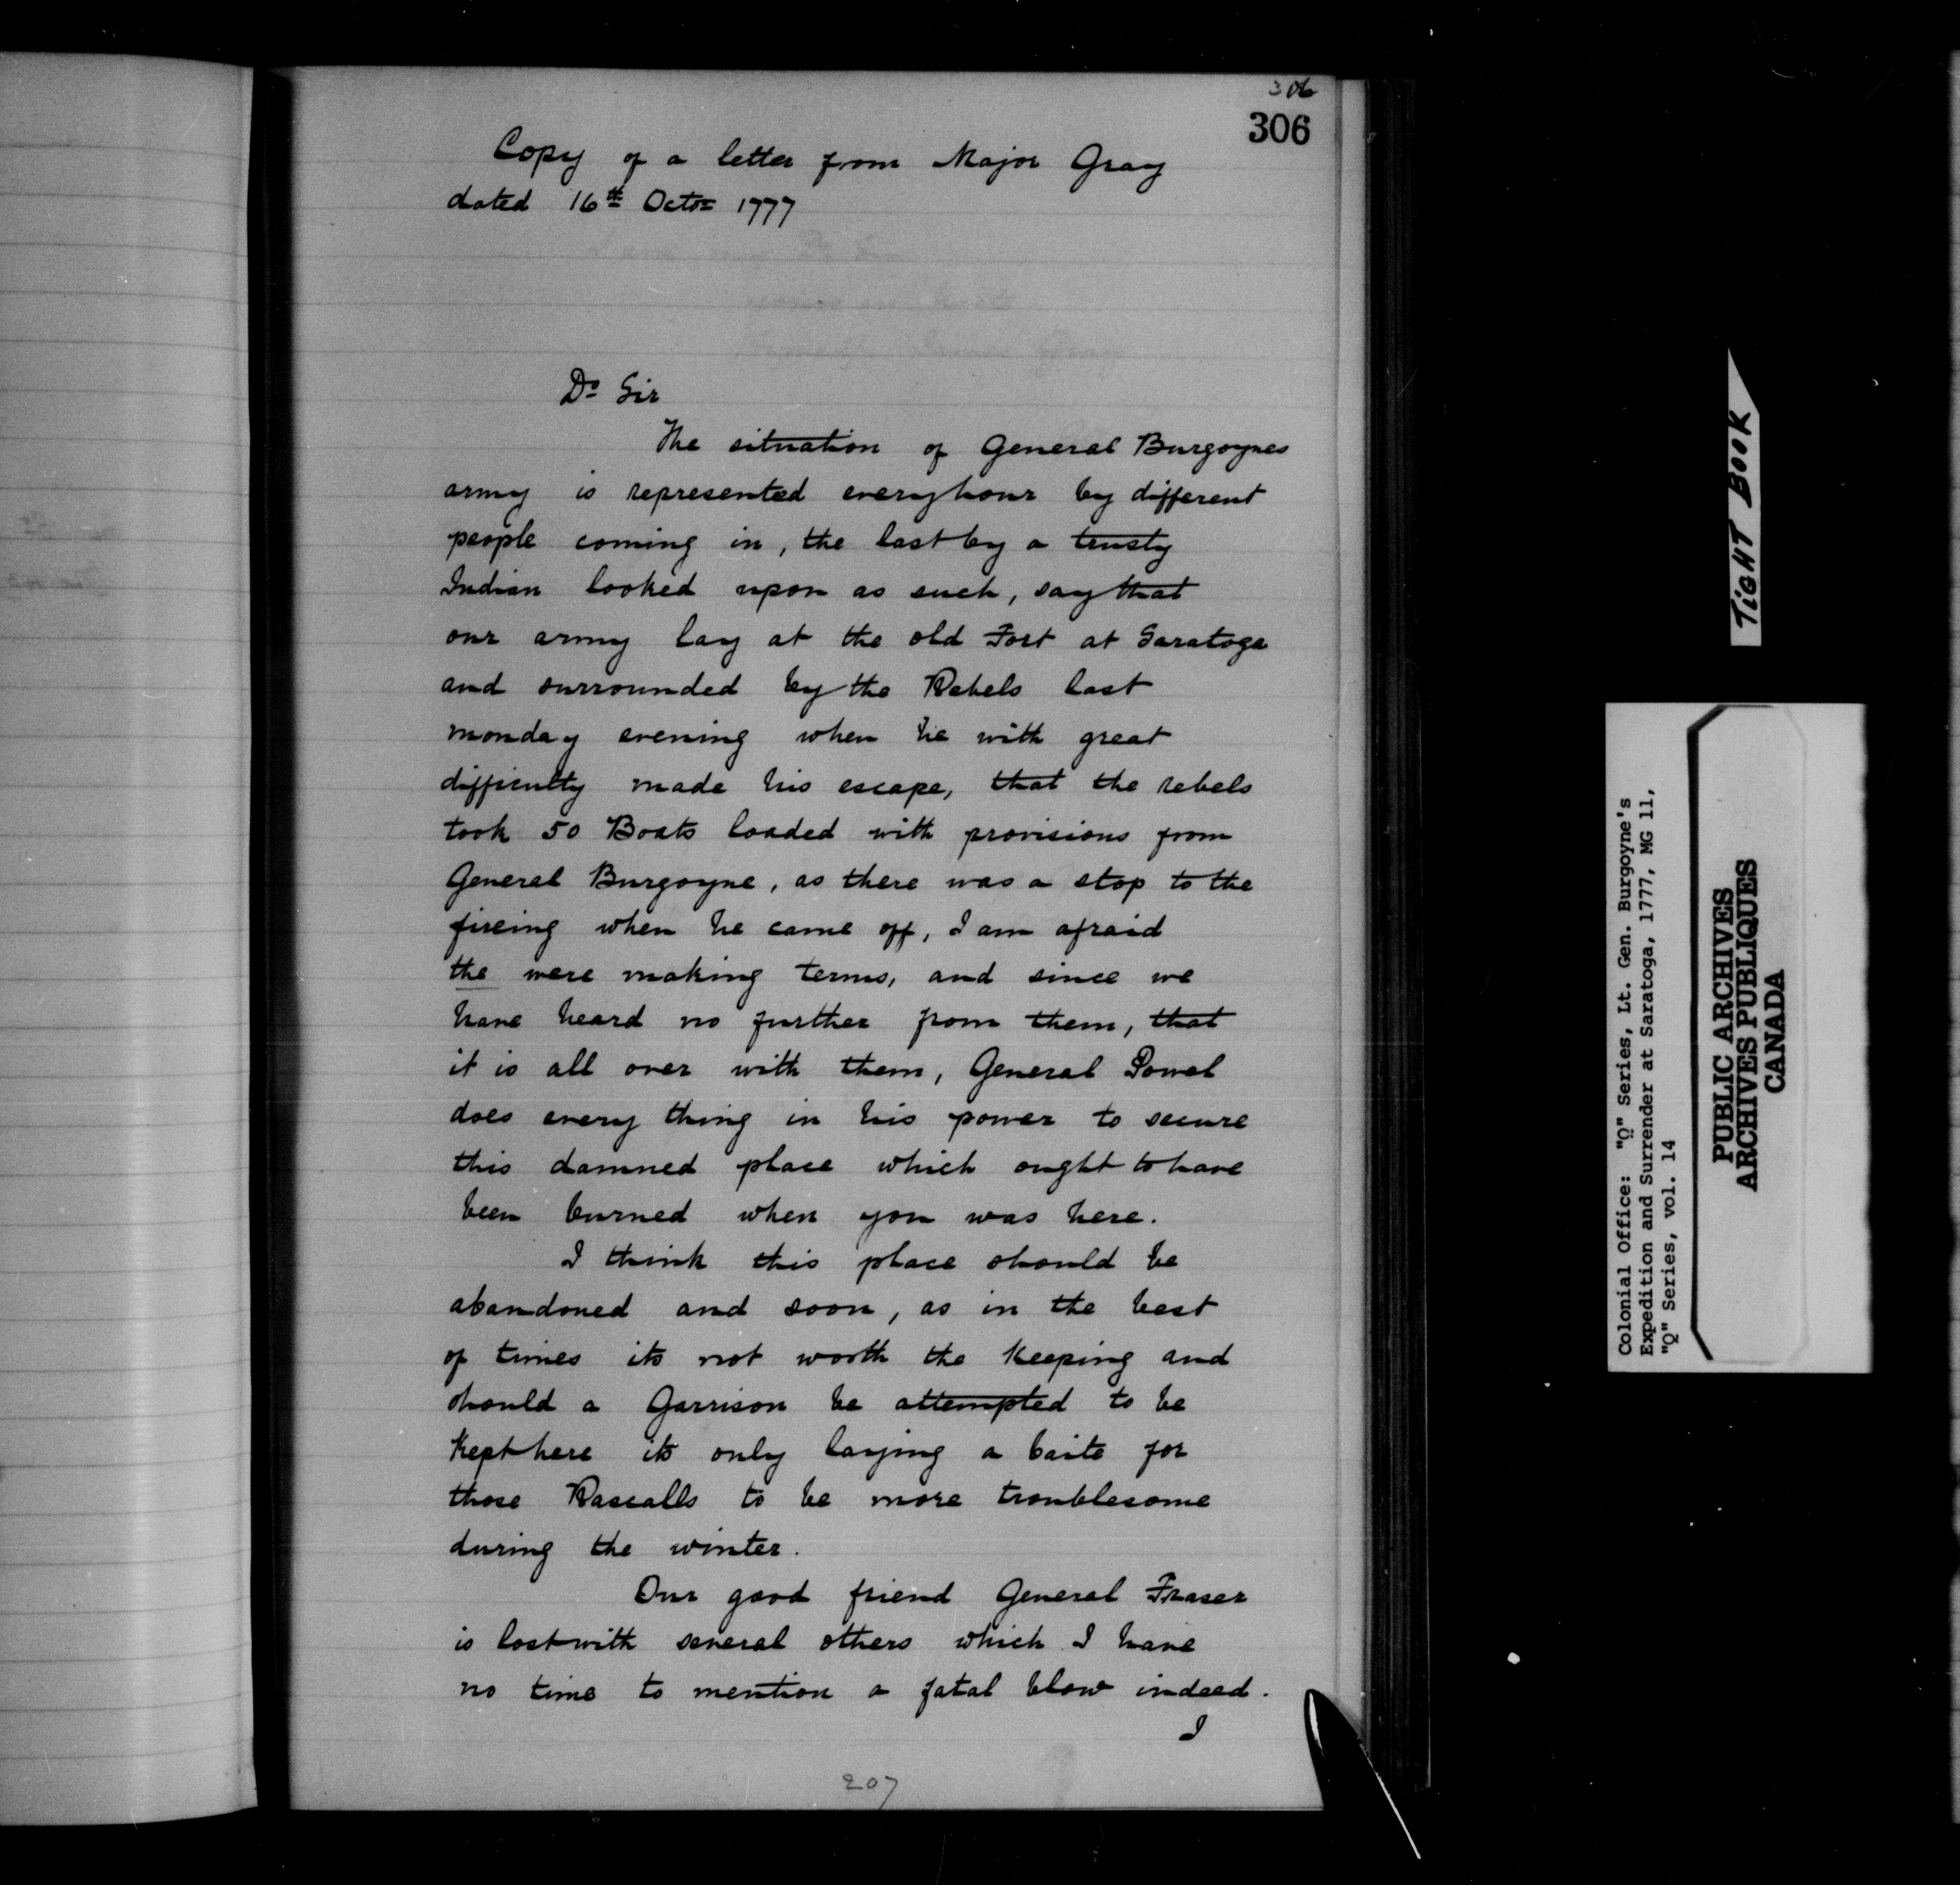 306
306
Copy of a letter from Major Gray
dated 16th Octor 1777
Dr Sir
The situation of General Burgoynes
army is represented everyhour by different
people coming in, the last by a trusty
Indian looked upon as such, say that
our army lay at the old Fort at Saratoga
and surrounded by the Rebels last
monday evening when he with great
difficulty made his escape, that the rebels
took 50 Boats loaded with provisions from
General Burgoyne, as there was a stop to the
fireing when he came off, I am afraid
the were making terms, and since we
have heard no further from them, that
it is all over with them, General Powel
does every thing in his power to secure
this damned place which ought to have
been burned when you was here.
I think this place should be
abandoned and soon, as in the best
of times its not worth the keeping and
should a Garrison be attempted to be
kept here its only laying a baite for
those Rascalls to be more troublesome
during the winter.
Our good friend General Fraser
is lost with several others which I have
no time to mention a fatal blow indeed.
I
207
TIGHT BOOK
Colonial Office: "Q" Series, Lt. Gen. Burgoyne's
Expedition and Surrender at Saratoga, 1777, MG 11,
"Q" Series, vol. 14
PUBLIC ARCHIVES
ARCHIVES PUBLIQUES
CANADA